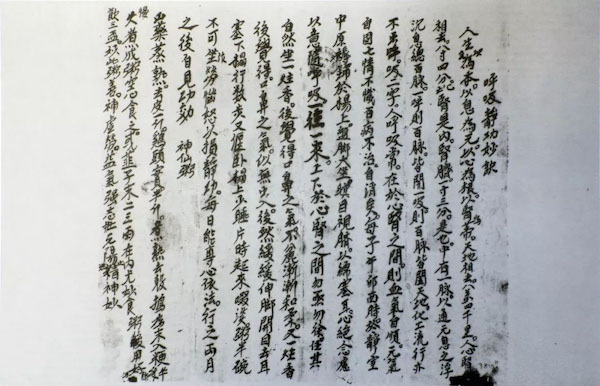 呼吸靜功妙訣
人生以氣為本以息為元以心為根以腎為蒂天地相去八萬四千里人心腎
相去八寸四分此腎是內腎臍下一寸三分是也中有一脈以通元息之浮
沉息總百脈一呼則百脈皆開一吸則百脈皆闔天地化工流行亦
不出呼吸二字人呼吸常在於心腎之間則血氣自順元氣
自固七情不熾百病不治自消矣每子午卯酉時於靜室
中厚褥鋪於榻上盤脚大坐瞑目視臍以綿塞耳心絕念慮
以意隨呼吸一往一來上下於心腎之間勿亟勿徐任其
自然坐一炷香後覺得口鼻之氣不粗漸漸和柔又一炷香
後覺得口鼻之氣似無出入然後緩緩伸脚開目去耳
塞下榻行數步又偃臥榻上少睡片時起來啜淡粥半碗
不可作勞惱怒以損靜功每日能專心依法行之兩月
之後自見功效 神仙粥
山藥蒸熟去皮一斤雞頭實半斤煮熟去殼搗為末入粳半升慢
火煮成粥空心食之或韭子末二三兩在內尤妙食粥後用好熱酒
飲三盃妙此粥善補虛勞益氣強志壯元陽止泄精神妙